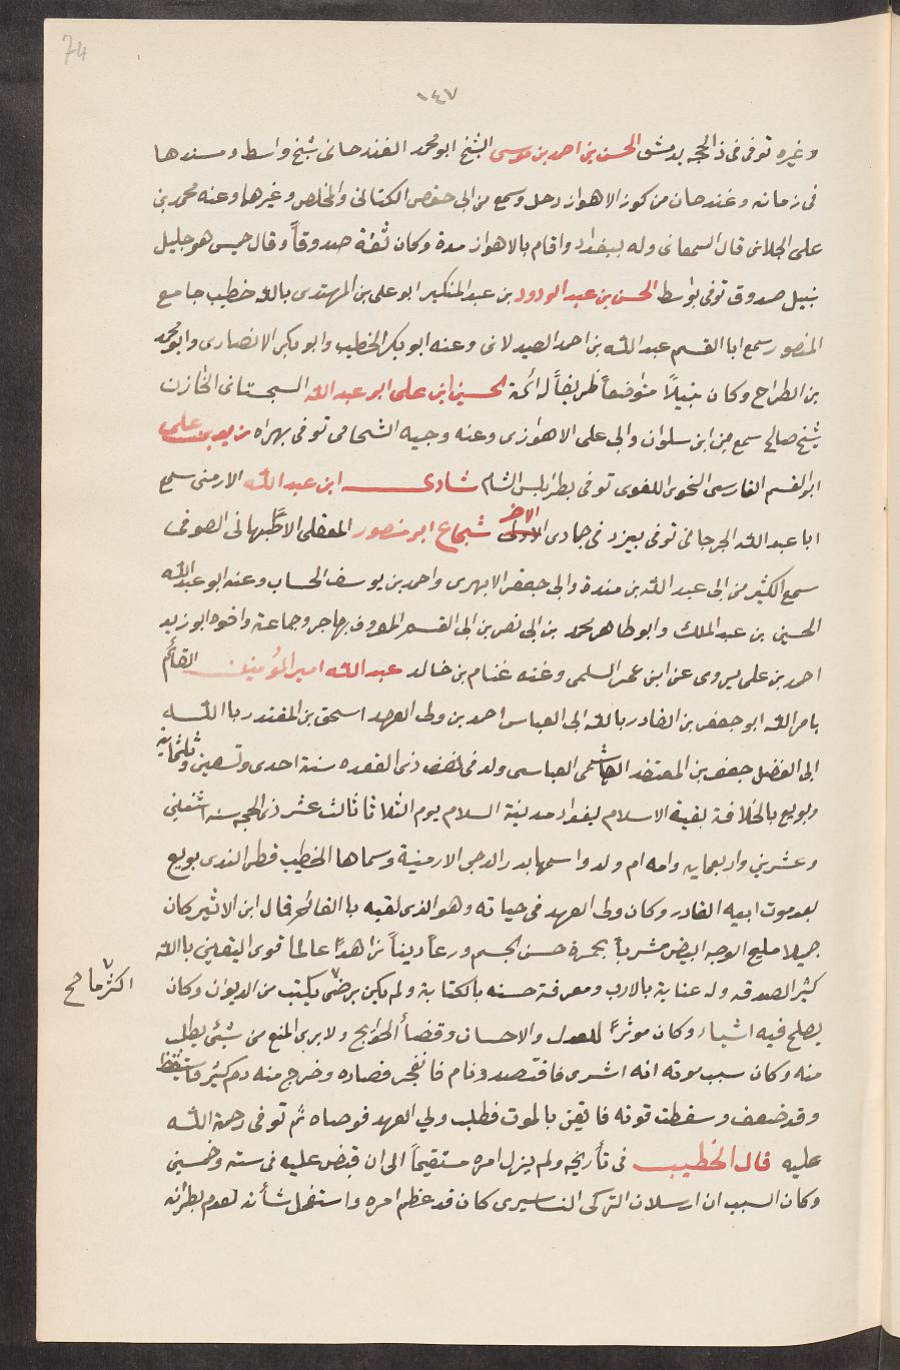 74
١٤٧
وغيره توفى فى ذالحجه بدمشق الحسن بن احمد بن موسى الشيخ ابو محمد الغندجانى شيخ واسط ومسندها
فى زمانه وغندجان من كور الاهواز رحل وسمع من ابى حفص الكتانى والمخلص وغيرها وعنه محمد بن
على الجلانى قال السمعانى وله ببغداد واقام بالاهواز مدة وكان ثقة صدوقاً وقال خميس هو جليل
نبيل صدوق توفى بواسط الحسن بن عبد الودود بن عبد المتكبر ابو على بن المهتدى بالله خطيب جامع
المنصور سمع ابا القسم عبد الله بن احمد الصيدلانى وعنه ابو بكر الخطيب وابو بكر الانصارى وابو محمد
بن الطراح وكان نبيلاً متواضعاً ظريفاً له ائمة الحسين ابن على ابو عبد الله السجستانى الخازن
شيخ صالح سمع من ابن سلوان وابى على الاهوازى وعنه وجيه الشحامى توفى بهراه زيد بن على
ابو القسم الفارسى النحوى اللغوى توفى بطرابلس الشام شادى ابن عبد الله الارمنى سمع
ابا عبد الله الجرجانى توفى بيزد فى جمادى الاولى الاخر شجاع ابو منصور المعقلى الاصبهانى الصوفى
سمع الكثير من ابى عبد الله بن مندة وابى جعفر الابهرى واحمد بن يوسف الخشاب وعنه ابو عبد الله
الحسين بن عبد الملك وابو طاهر محمد بن ابى نصر بن ابى القسم المعروف بهاجر وجماعة واخوه ابو زيد
احمد بن على يروى عن ابن عمر السلمى وعنه غنام بن خالد عبد الله امير المؤمنين القائم
بامر الله ابو جعفر بن القادر بالله ابى العباس احمد بن ولى العهد اسحق بن المقتدر باالله
ابى الفضل جعفر بن المعتضد الهاشمى العباسى ولد فى نصف ذى القعده سنة احدى وتسعين وثلثمائة
وبويع بالخلافة بقية الاسلام بغداد مدينة السلام يوم الثلاثا ثالث عشر ذى الحجه سنه اثنين
وعشرين واربعمايه وامه ام ولد واسمها بدر الدجى الارمنية وسماها الخطيب قطر الندى بويع
بعد موت ابيه القادر وكان ولى العهد فى حياته وهو الذى لقبه باالقائم قال ابن الاثير كان
جميلا مليح الوجه ابيض مشرباً بحمرة حسن الجسم ورعاً ديناً زاهداً عالما قوى اليقين باالله
كثير الصدقه وله عناية بالادب ومعرفة حسنه بالكتابة ولم يكن يرضى ٧ يكتب من الديوان وكان
٧ اكثر ما صح
يصلح فيه اشياء وكان موثراً للعدل والاحسان وقضاأ الحوايج ولا يرى المنع من شيئ يطلب
منه وكان سبب موته انه اشرى فافتصد ونام فانفجر فصاده وخرج منه دم كثير فاستيقظ
وقد ضعف وسقطت قوته فايقن بالموت فطلب ولي العهد فوصاه ثم توفى رحمة الله
عليه قال الخطيب فى تأريخه ولم يزل امره مستقيماً الى ان قبض عليه فى سنه وخمسين
وكان السبب ان ارسلان التركى البساسيرى كان قد عظم امره واستفحل شأنه لعدم نظرائه